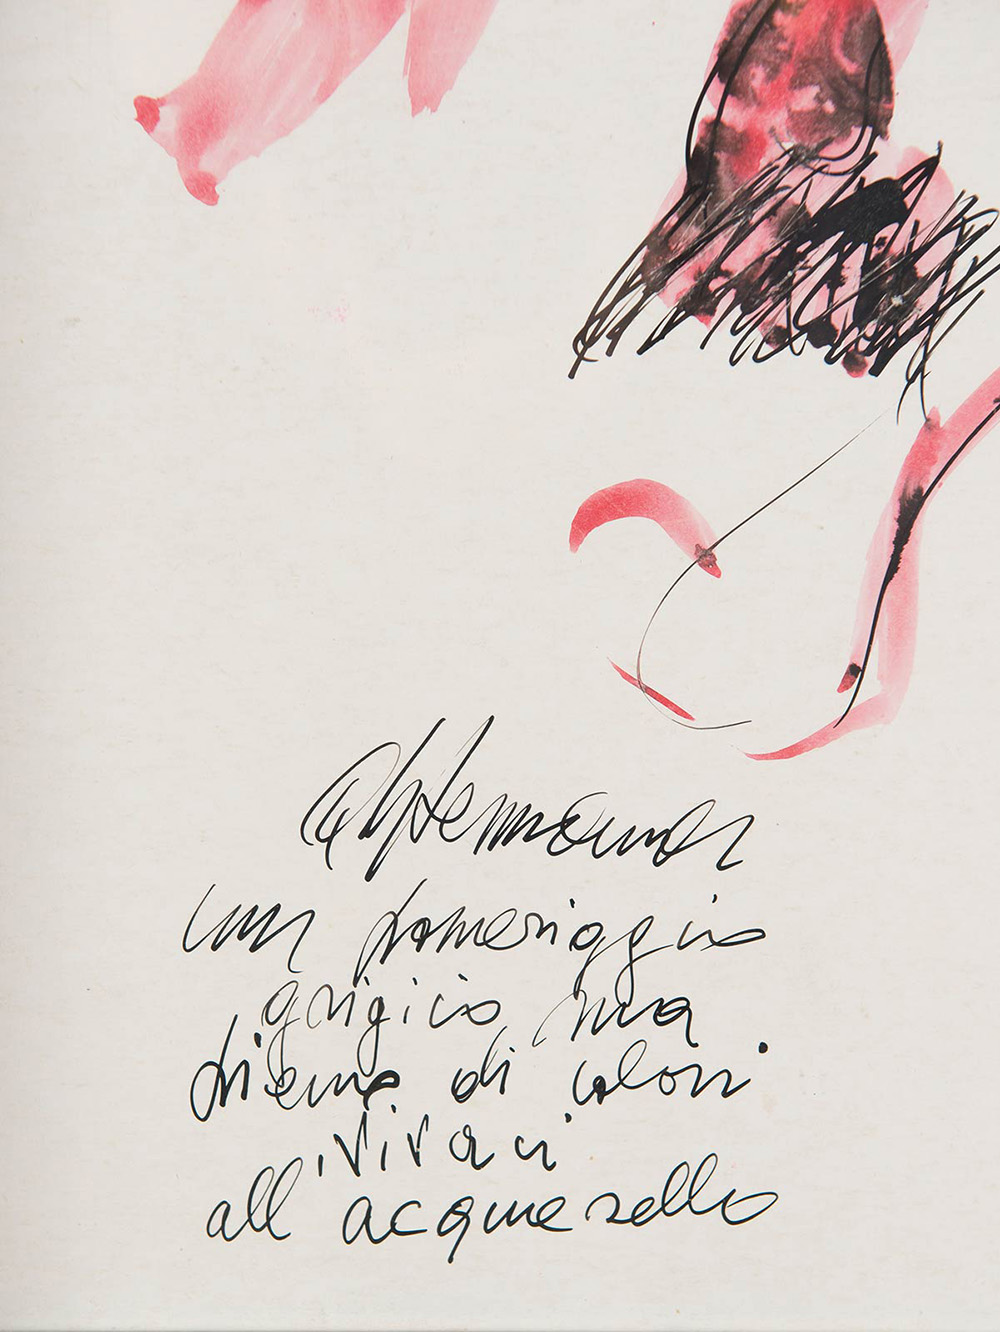 un pomeriggio
grigio ma
pieno di colori
vivaci
all'acquerello